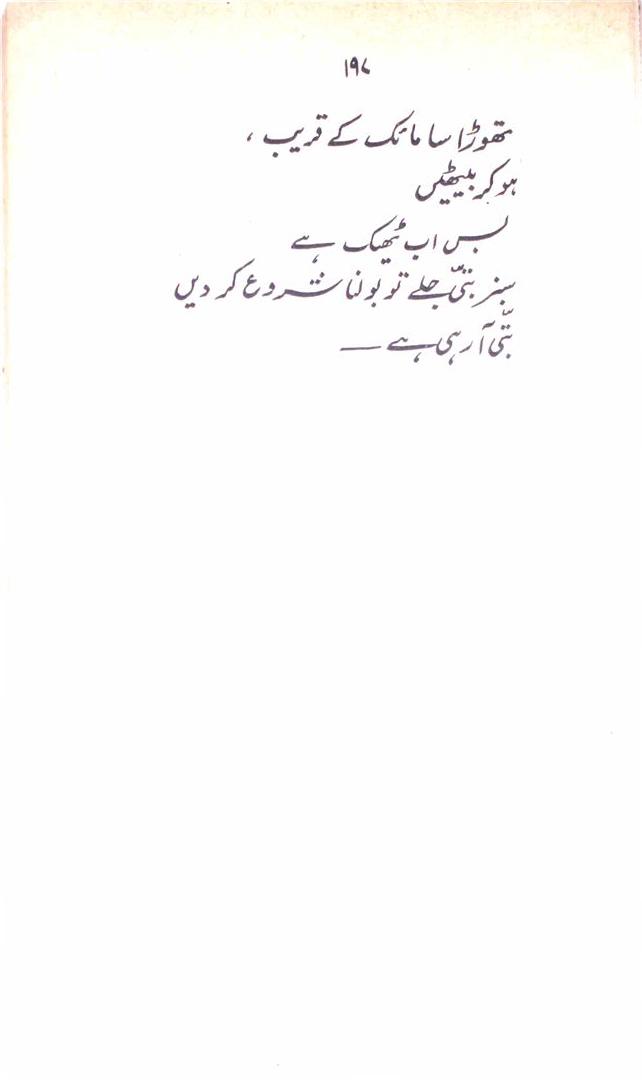 ۱۹۷
تھوڑا سا مائک کے قریب ،
ہو کر بیٹھیں
بس اب ٹھیک ہے
سبز بتّی جلے تو بولنا شروع کر دیں
بتّی آ رہی ہے —